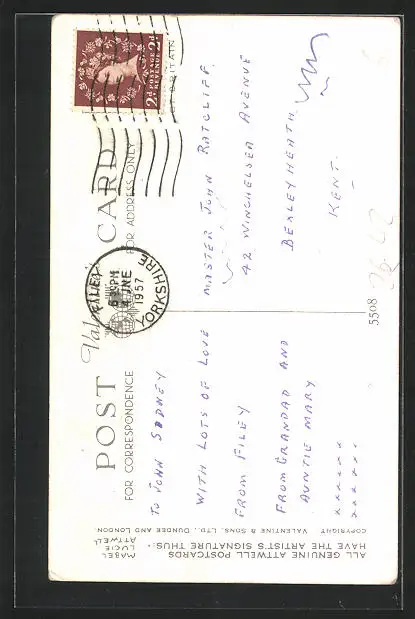 POST CARD
Valentine's
FOR CORRESPONDENCE
FOR ADDRESS ONLY
TO JOHN SIDNEY
WITH LOTS OF LOVE
FROM FILEY
FROM GRANDAD AND
AUNTIE MARY
x x x x x x
x x x x x x x
MASTER JOHN RATCLIFF.
42 WINCHELSEA AVENUE
BEXLEYHEATH
KENT.
2d POSTAGE REVENUE 2d
FILEY
6-30PM
4 JNE
1957
YORKSHIRE
5508
ALL GENUINE ATTWELL POSTCARDS
HAVE THE ARTIST'S SIGNATURE THUS:-
MABEL
LUCIE
ATTWELL
COPYRIGHT VALENTINE & SONS, LTD., DUNDEE AND LONDON